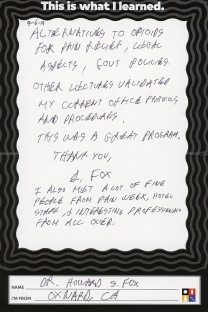 This is what I learned.
9-6-19
ALTERNATIVES TO OPIOIDS
FOR PAIN RELIEF, LEGAL
ASPECTS, GOVT POLICIES.
OTHER LECTURES VALIDATED
MY CURRENT OFFICE PROTOCOLS
AND PROCEDURES.
THIS WAS A GREAT PROGRAM.
THANK YOU,
FOX
I ALSO MET A LOT OF FINE
PEOPLE FROM PAIN WEEK, HOTEL
STAFF, & INTERESTING PROFESSIONALS
FROM ALL OVER.
NAME DR. HOWARD S. FOX
I'M FROM OXNARD, CA